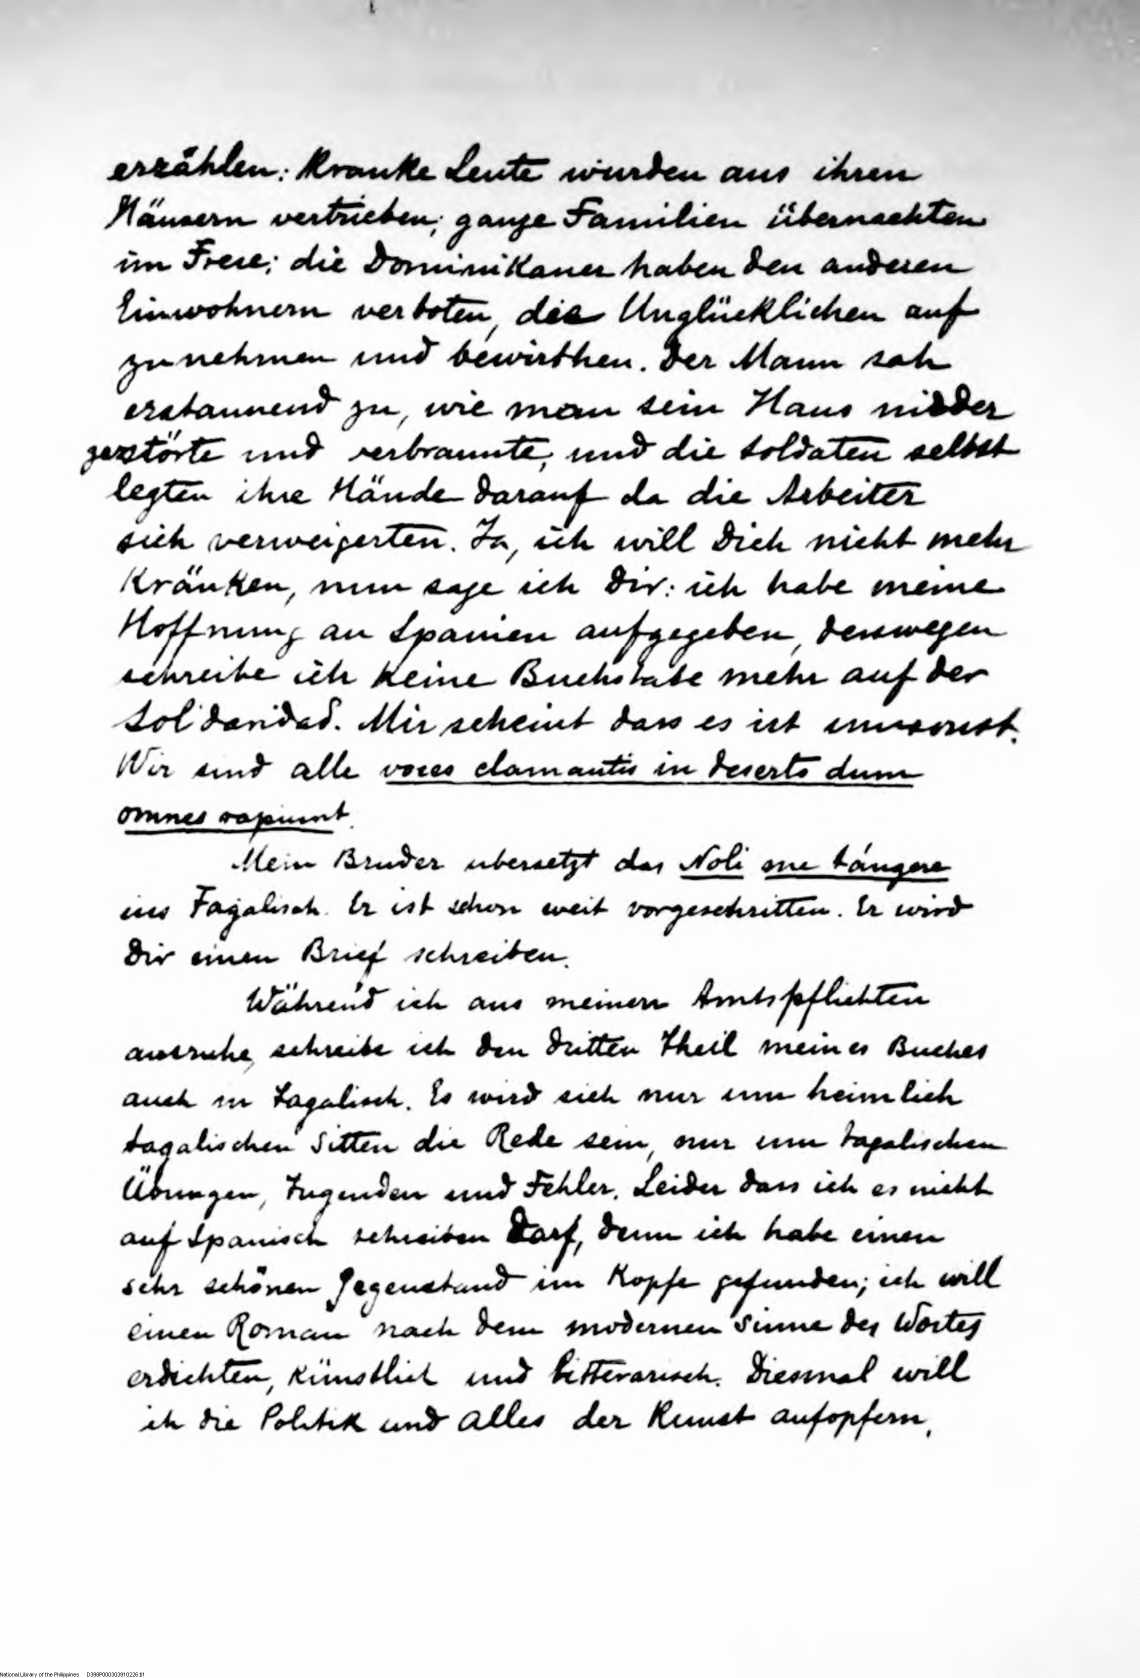 erzählen: Kranke Leute wurden aus ihren
Häusern vertrieben; ganze Familien übernachten
im Freie; die Dominikaner haben den anderen
Einwohnern verboten, die Unglücklichen auf
zu nehmen und bewirthen. Der Mann sah
erstaunend zu, wie man sein Haus nieder
zerstörte und verbrannte, und die Soldaten selbst
legten ihre Hände darauf da die Arbeiter
sich verweigerten. Ja, ich will Dich nicht mehr
Kränken, nun sage ich Dir: ich habe meine
Hoffnung an Spanien aufgegeben, desswegen
schreibe ich keine Buchstabe mehr auf der
Solidaridad. Mir scheint dass es ist umsonst.
Wir sind alle voces clamantis in deserto dum
omnes rapiunt.
Mein Bruder ubersetzt das Noli me tángere
ins Tagalisch. Er ist schon weit vorgeschritten. Er wird
Dir einen Brief schreiben.
Während ich aus meinen Amtspflichten
ausruhe, schreibe ich den dritten Theil meines Buches
auch in Tagalisch. Es wird sich nur um heimlich
tagalischen Sitten die Rede sein, nur um tagalischen
Übungen, Tugenden und Fehler. Leider dass ich es nicht
auf Spanisch schreiben Darf, denn ich habe einen
sehr schönen Gegenstand im Kopfe gefunden; ich will
einen Roman nach dem modernen Sinne des Wortes
erdichten, künstlich und litterarisch. Diesmal will
ich die Politik und alles der Kunst aufopfern.
National Library of the Philippines